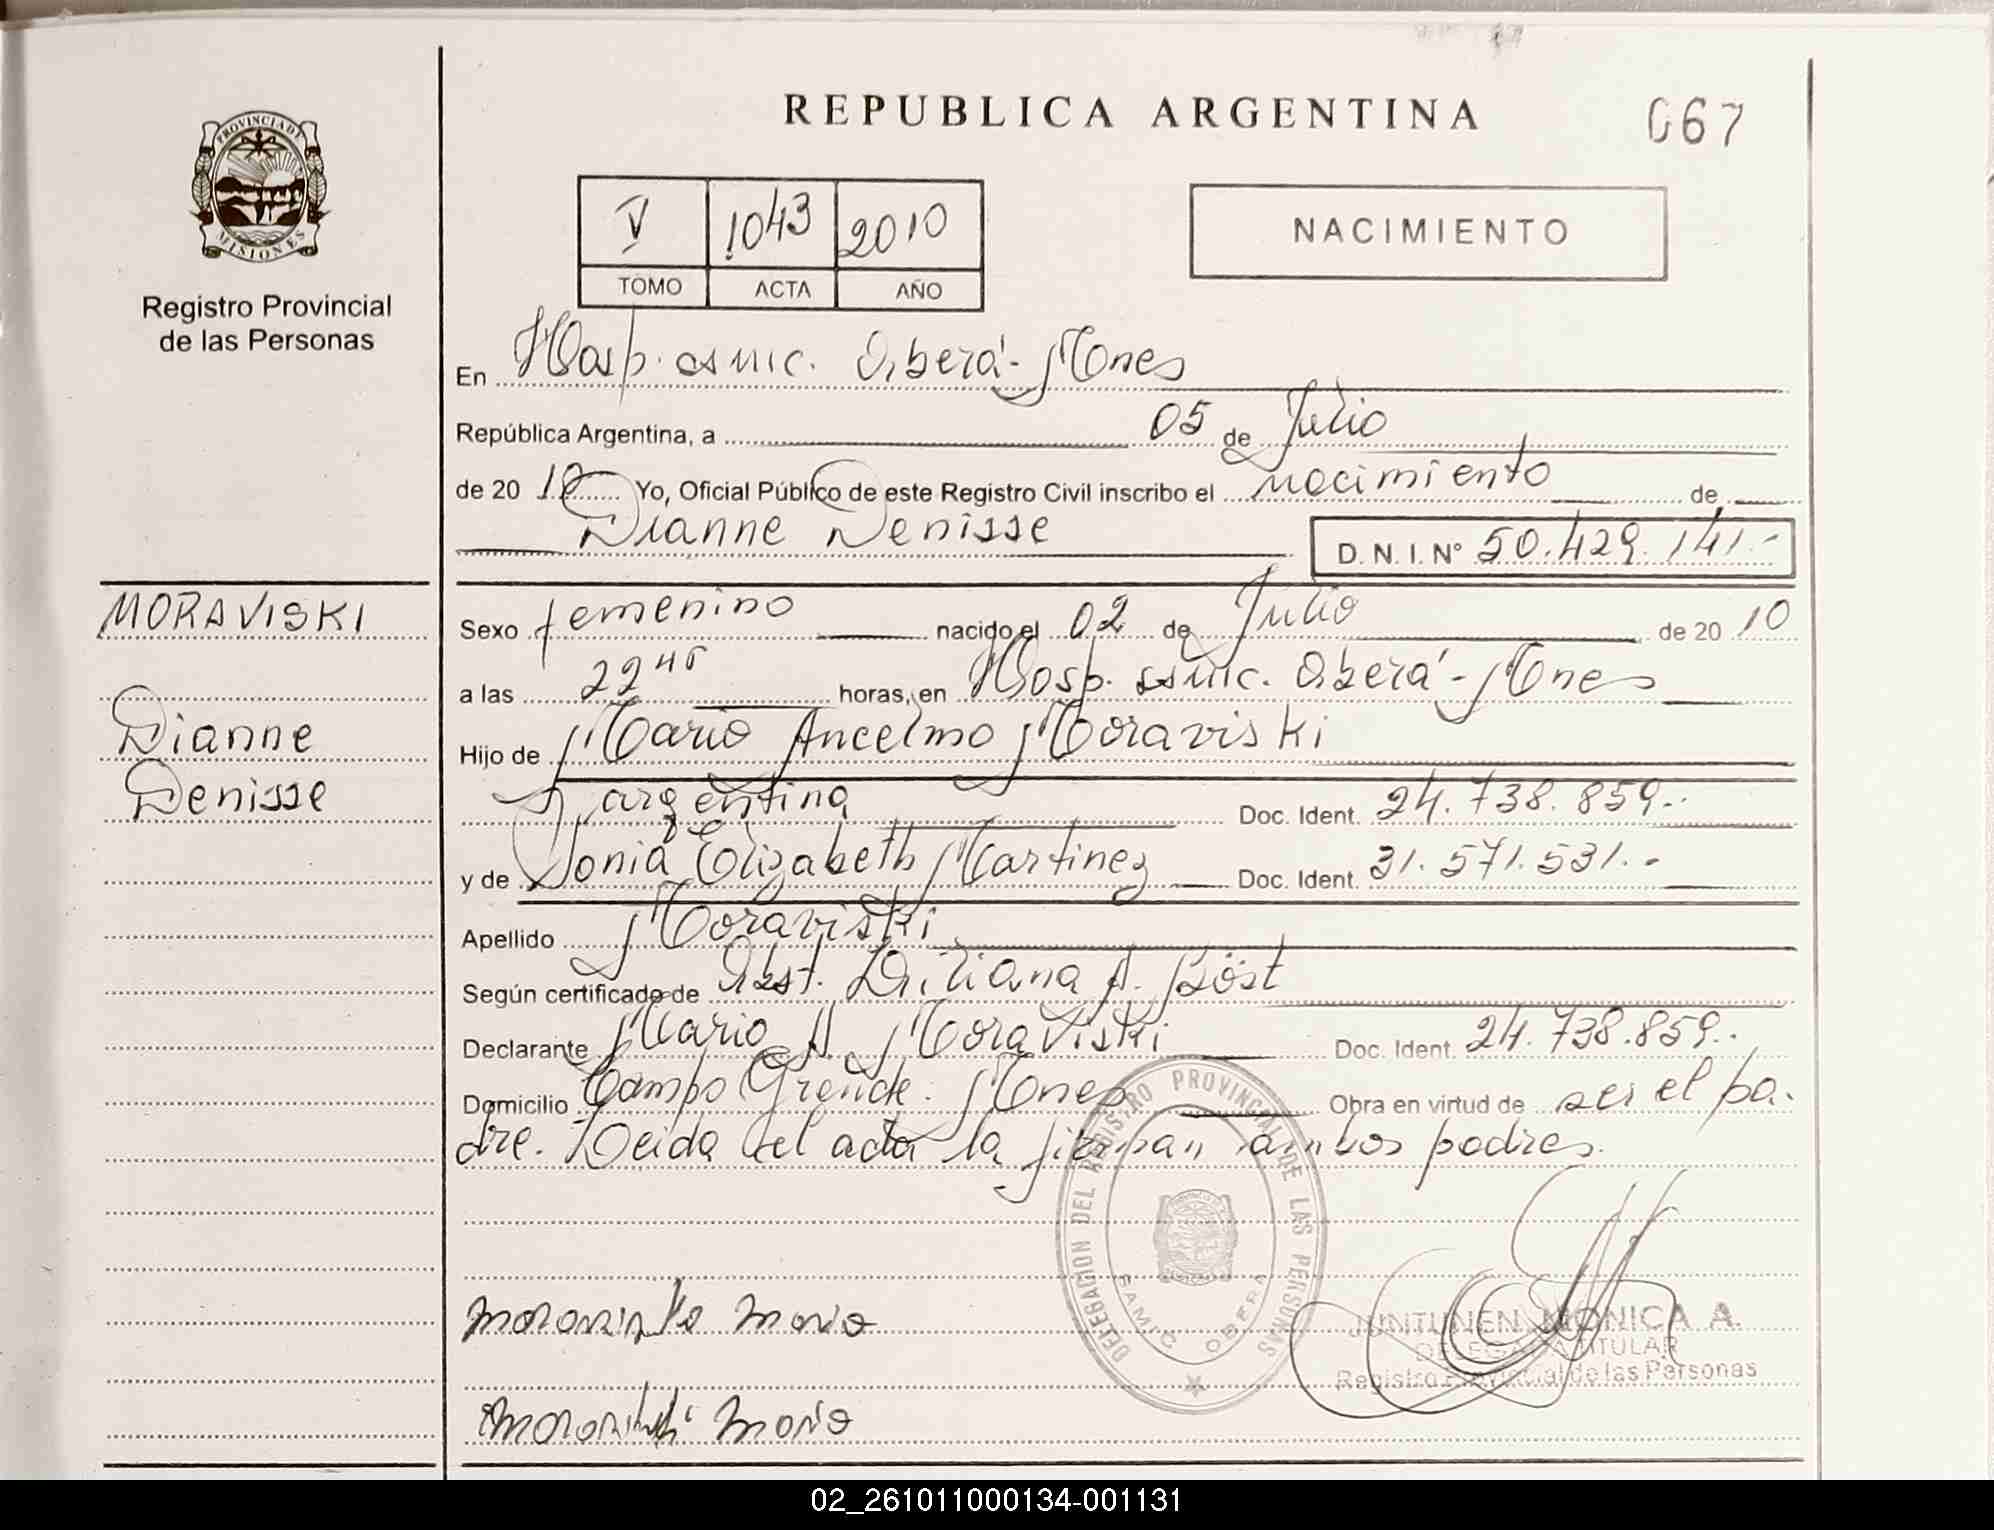 REPUBLICA ARGENTINA
067
PROVINCIA DE
MISIONES
Registro Provincial
de las Personas
V 1043 2010
TOMO ACTA AÑO
NACIMIENTO
En Hosp. samic. Oberá - Mnes
República Argentina, a 05 de Julio
de 20 10 Yo, Oficial Público de este Registro Civil inscribo el nacimiento de
Dianne Denisse
D.N.I. Nº 50.429.141.-
MORAVISKI
Dianne
Denisse
Sexo femenino nacido el 02 de Julio de 20 10
a las 22 45 horas, en Hosp. samic. Oberá - Mnes
Hijo de Mario Ancelmo Moraviski
argentina Doc. Ident. 24.738.859.-
y de Sonia Elizabeth Martinez Doc. Ident. 31.571.531.-
Apellido Moraviski
Según certificado de Obst. Liliana A. Böst
Declarante Mario A. Moraviski Doc. Ident. 24.738.859.-
Domicilio Campo Grande. Mnes Obra en virtud de ser el pa-
dre. Leida el acta la firman ambos padres.
DELEGACION DEL REGISTRO PROVINCIAL DE LAS PERSONAS
SAMIC OBERA
Mario
JUNTUNEN MONICA A.
DELEGADA TITULAR
Registro Provincial de las Personas
Mario
02_261011000134-001131